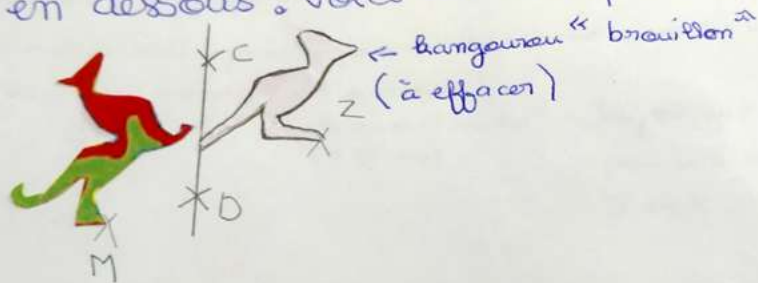 en dessous. Voici
← kangourou « brouillon »
(à effacer)
C
Z
D
M